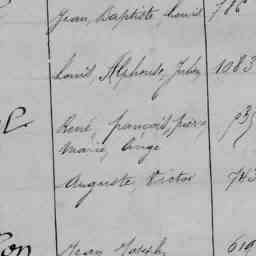 Jean, Baptiste, Louis 786
Louis, Alphonse, Jules 1083
René, françois, pierre
Marie, Ange
Auguste, Victor
Jean Joseph 619